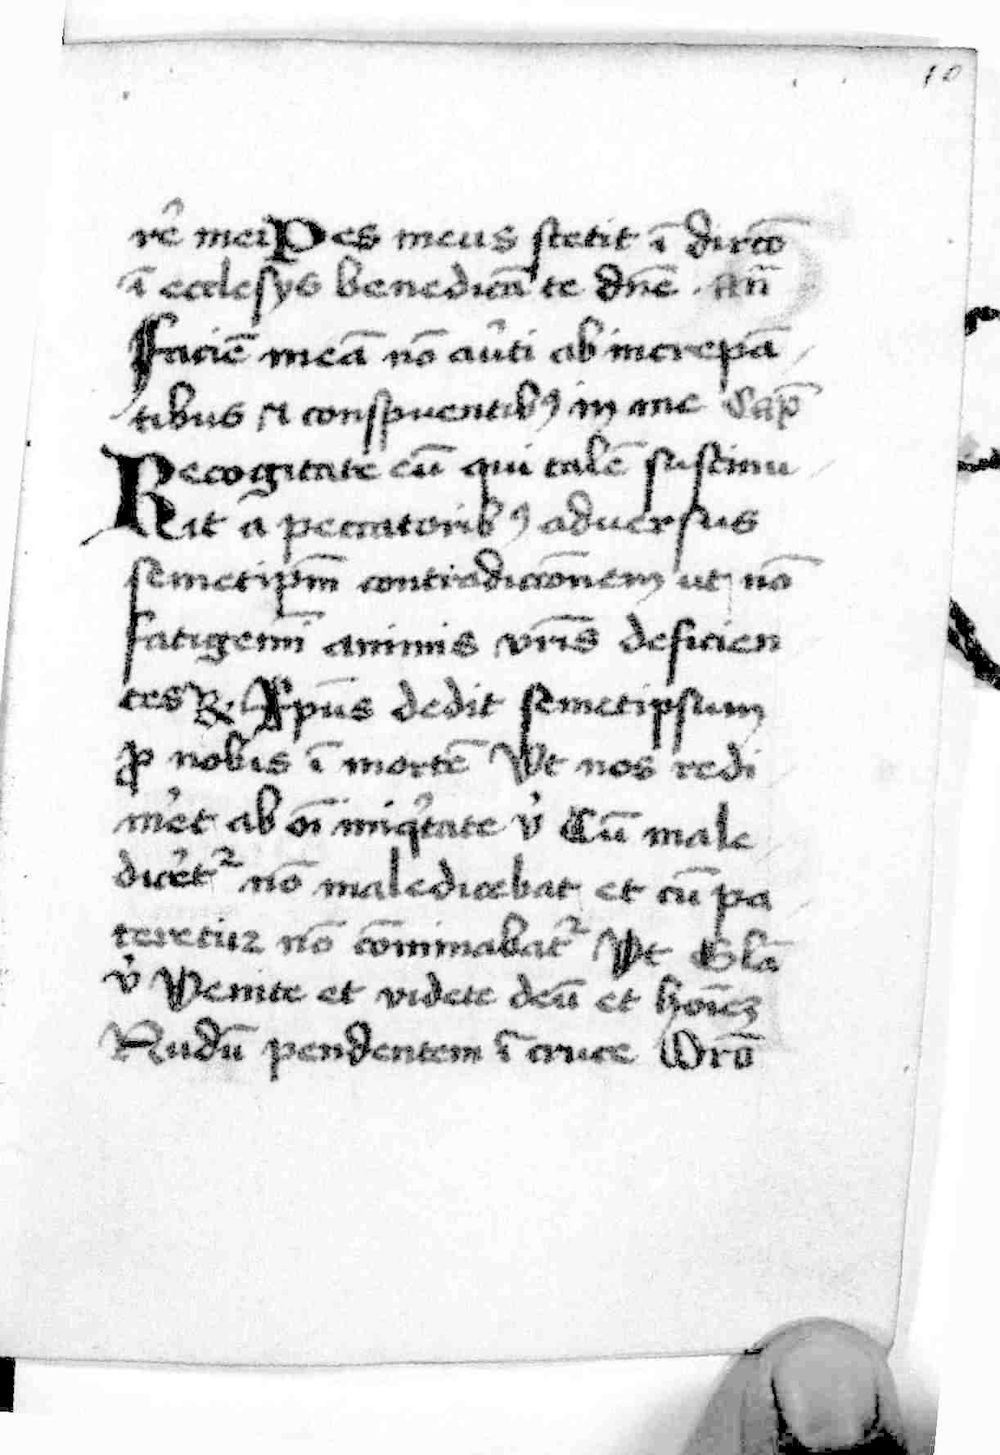 10
rẽ mei Pes meus stetit ĩ dirc̃to
ĩ ecclesijs benedicã te dñe . añ
Faciẽ meã nõ aũti ab increpã
tibus ⁊ conspuentibꝰ in me Cap̃
Recogitate eũ qui talẽ sustinu
Rit a peccatoribꝰ adversus
semetip̃m contradicc̃onem ut nõ
fatigemĩ animis vr̃is deficien
tes ℟. Xp̃us dedit semetipsum
ꝓ nobis ĩ mortẽ Vt nos redi
m̓et ab oĩ iniq̓tate v̓ Cũ male
dic̓et᷑ nõ maledicebat et cũ pa
teretur nõ cõminabat᷑ Vt Glã
v̓ Venite et videte deũ et hoĩez
Nudũ pendentem ĩ cruce Orõ